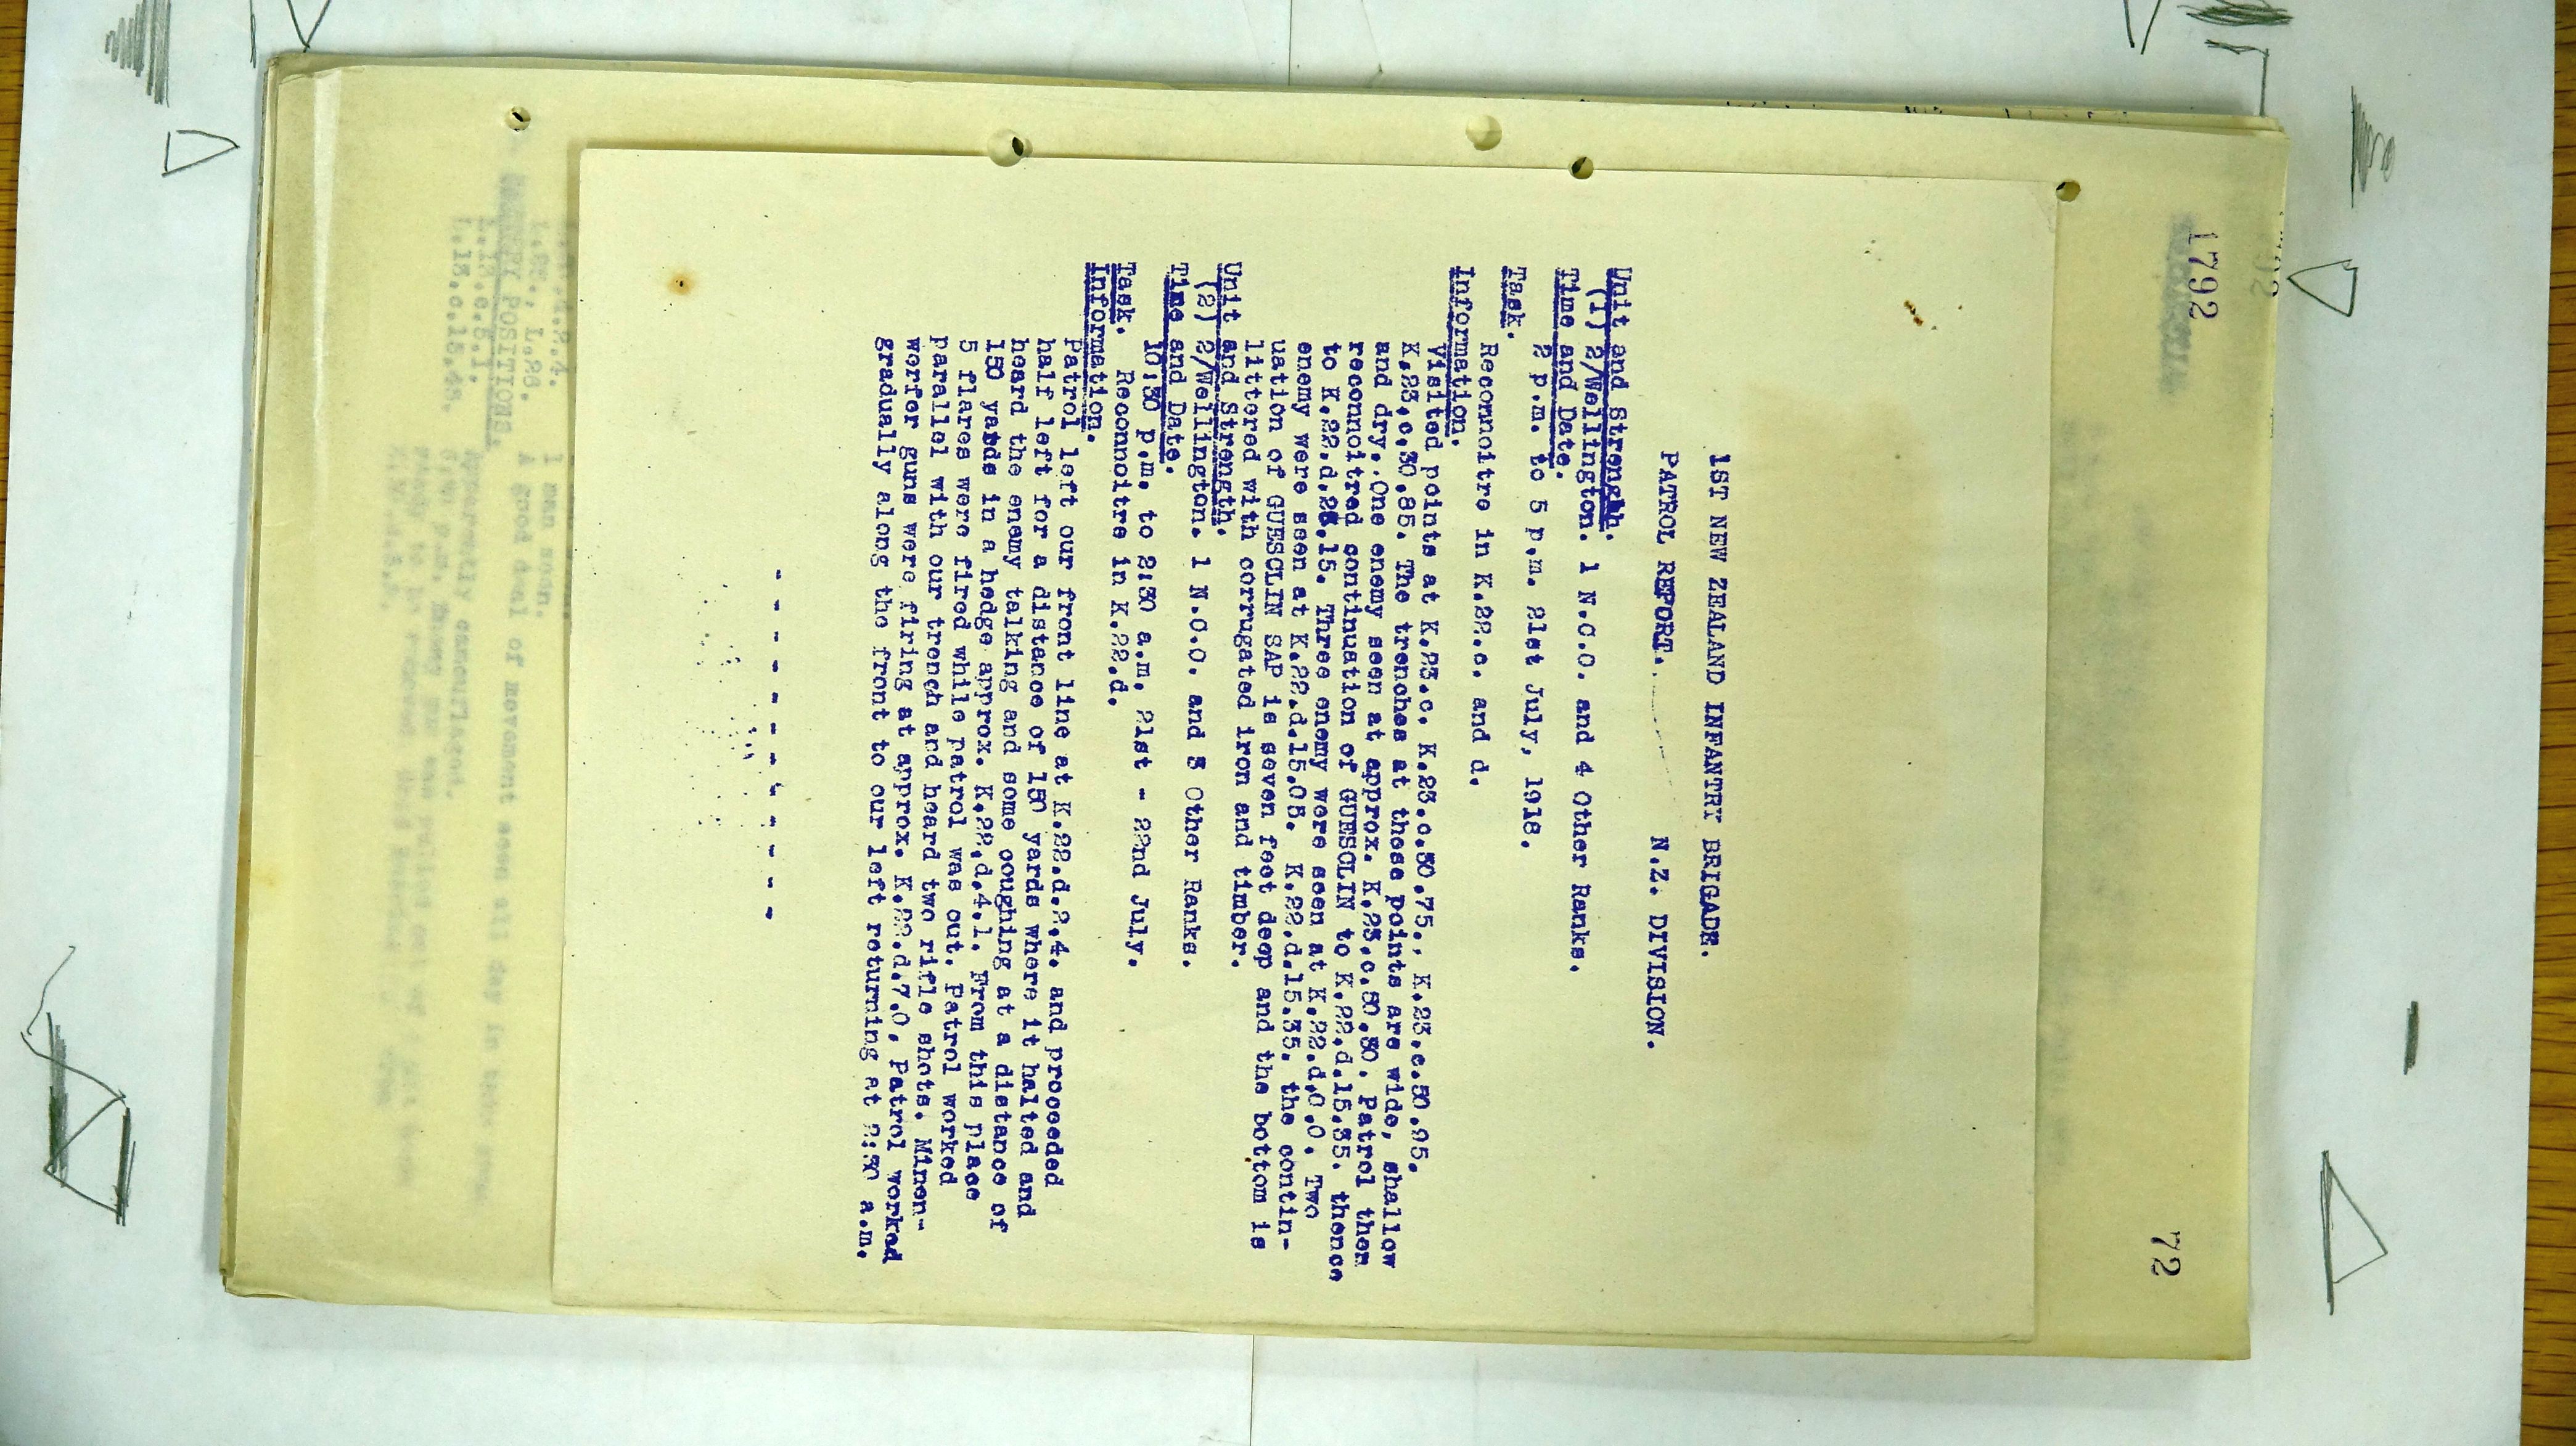 1792
72
1ST NEW ZEALAND INFANTRY BRIGADE.
PATROL REPORT. N.Z. DIVISION.
Unit and Strength.
(1) 2/Wellington. 1 N.C.O. and 4 Other Ranks.
Time and Date.
2 p.m. to 5 p.m. 21st July, 1918.
Task.
Reconnoitre in K.22.c. and d.
Information.
Visited points at K.23.c. K.23.c.30.75., K.23.c.50.95.
K.23.c.30.85. The trenches at these points are wide, shallow
and dry. One enemy seen at approx. K.23.c.80.30. Patrol them
reconnoitred continuation of GUESCLIN to K.22.d.15.35. thence
to K.22.d.28.15. Three enemy were seen at K.22.d.0.0. Two
enemy were seen at K.22.d.15.05. K.22.d.15.35. the contin-
uation of GUESCLIN SAP is seven feet deep and the bottom is
littered with corrugated iron and timber.
Unit and Strength.
(2) 2/Wellington. 1 N.C.O. and 3 Other Ranks.
Time and Date.
10:30 p.m. to 2:30 a.m. 21st - 22nd July.
Task. Reconnoitre in K.22.d.
Information.
Patrol left our front line at K.22.d.2.4. and proceeded
half left for a distance of 150 yards where it halted and
heard the enemy talking and some coughing at a distance of
150 yards in a hedge approx. K.22.d.4.1. From this place
5 flares were fired while patrol was out. Patrol worked
parallel with our trench and heard two rifle shots. Minen-
werfer guns were firing at approx. K.22.d.7.0, Patrol worked
gradually along the front to our left returning at 2:30 a.m.
- - - - - - - - - - - -
1 man seen.
BATTERY POSITIONS. A good deal of movement seen all day in